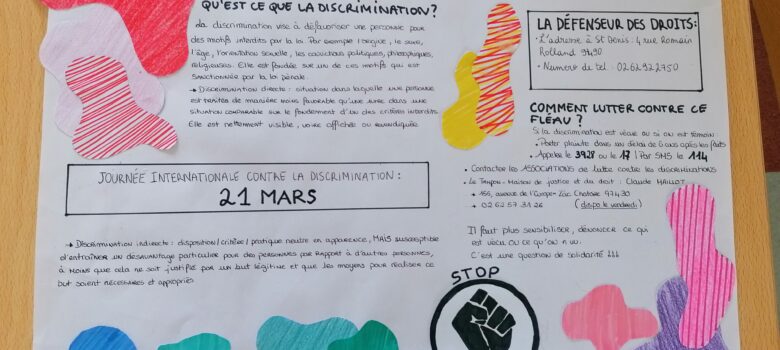 QU'EST CE QUE LA DISCRIMINATION?
La discrimination vise à défavoriser une personne pour
des motifs interdits par la loi. Par exemple l'origine, le sexe,
l'âge, l'orientation sexuelle, les convictions politiques, philosophiques,
religieuses. Elle est fondée sur un de ces motifs qui est
sanctionnée par la loi pénale.
→ Discrimination directe : situation dans laquelle une personne
est traitée de manière moins favorable qu'une autre dans une
situation comparable sur le fondement d'un des critères interdits
Elle est nettement visible, voire affichée ou revendiquée
JOURNÉE INTERNATIONALE CONTRE LA DISCRIMINATION :
21 MARS
→ Discrimination indirecte : disposition/critère/pratique neutre en apparence, MAIS susceptible
d'entraîner un désavantage particulier pour des personnes par rapport à d'autres personnes,
à moins que cela ne soit justifié par un but légitime et que les moyens pour réaliser ce
but soient nécessaires et appropriés
LA DÉFENSEUR DES DROITS:
• L'adresse à St Denis : 4 rue Romain
Rolland 97490
• Numero de tel : 0262922750
COMMENT LUTTER CONTRE CE
FLÉAU ?
Si la discrimination est vécue ou si on est témoin :
• Porter plainte dans un délai de 6 ans après les faits
• Appelez le 3928 ou le 17 | Par SMS le 114
• Contacter les ASSOCIATIONS de lutte contre les discriminations
• Le Tampon : Maison de justice et du droit : Claude MAILLOT
→ 156, avenue de l'Europe - Zac Chatoire 97430
→ 02 62 57 31 26 (dispo le vendredi)
Il faut plus sensibiliser, dénoncer ce qui
est vécu ou ce qu'on a vu.
C'est une question de solidarité !!!
STOP